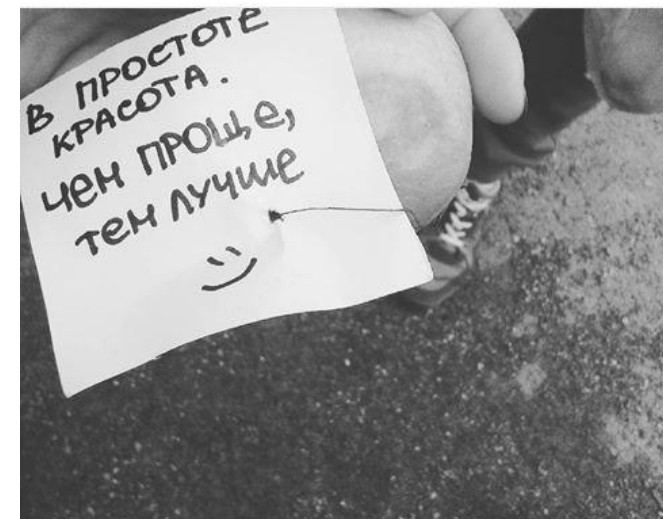 В ПРОСТОТЕ
КРАСОТА.
чем ПРОЩЕ,
тем ЛУЧШЕ